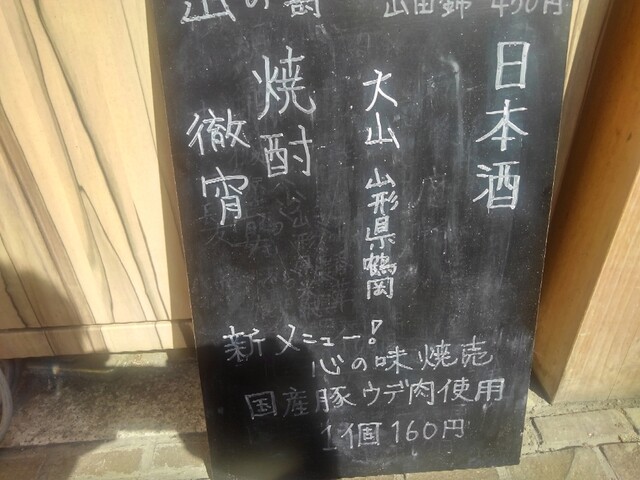 山の響 山田錦 450円
日本酒
大山 山形県鶴岡
焼酎
徹宵
新メニュー!
心の味焼売
国産豚ウデ肉使用
1個160円